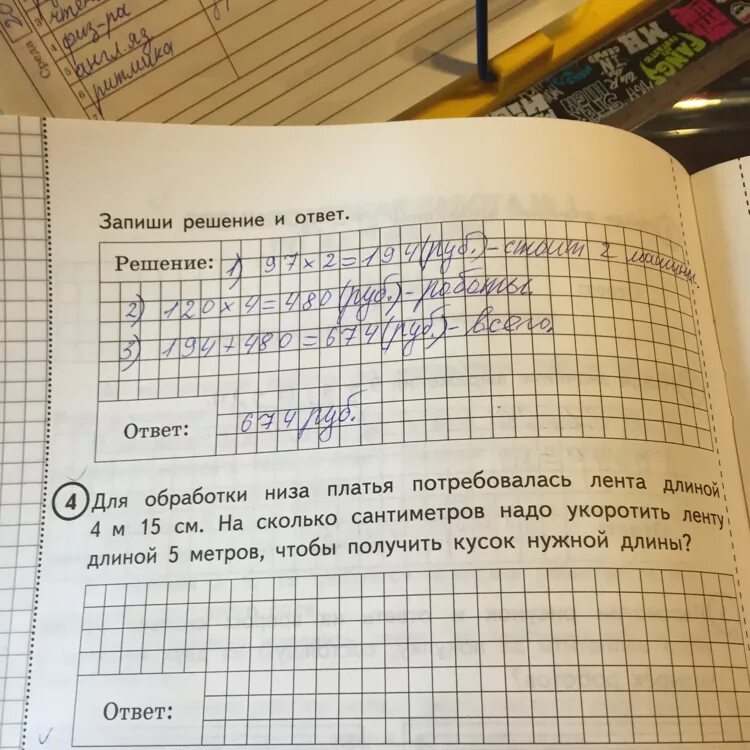 Среда
чтен
физ-ра
англ яз.
ритмика
FANCY
Запиши решение и ответ.
Решение: 1) 97×2=194(руб.)-стоит 2 машины.
2) 120×4=480(руб.)-роботы
3) 194+480=674(руб.)-всего.
Ответ: 674 руб.
4 Для обработки низа платья потребовалась лента длиной
4 м 15 см. На сколько сантиметров надо укоротить ленту
длиной 5 метров, чтобы получить кусок нужной длины?
Ответ: